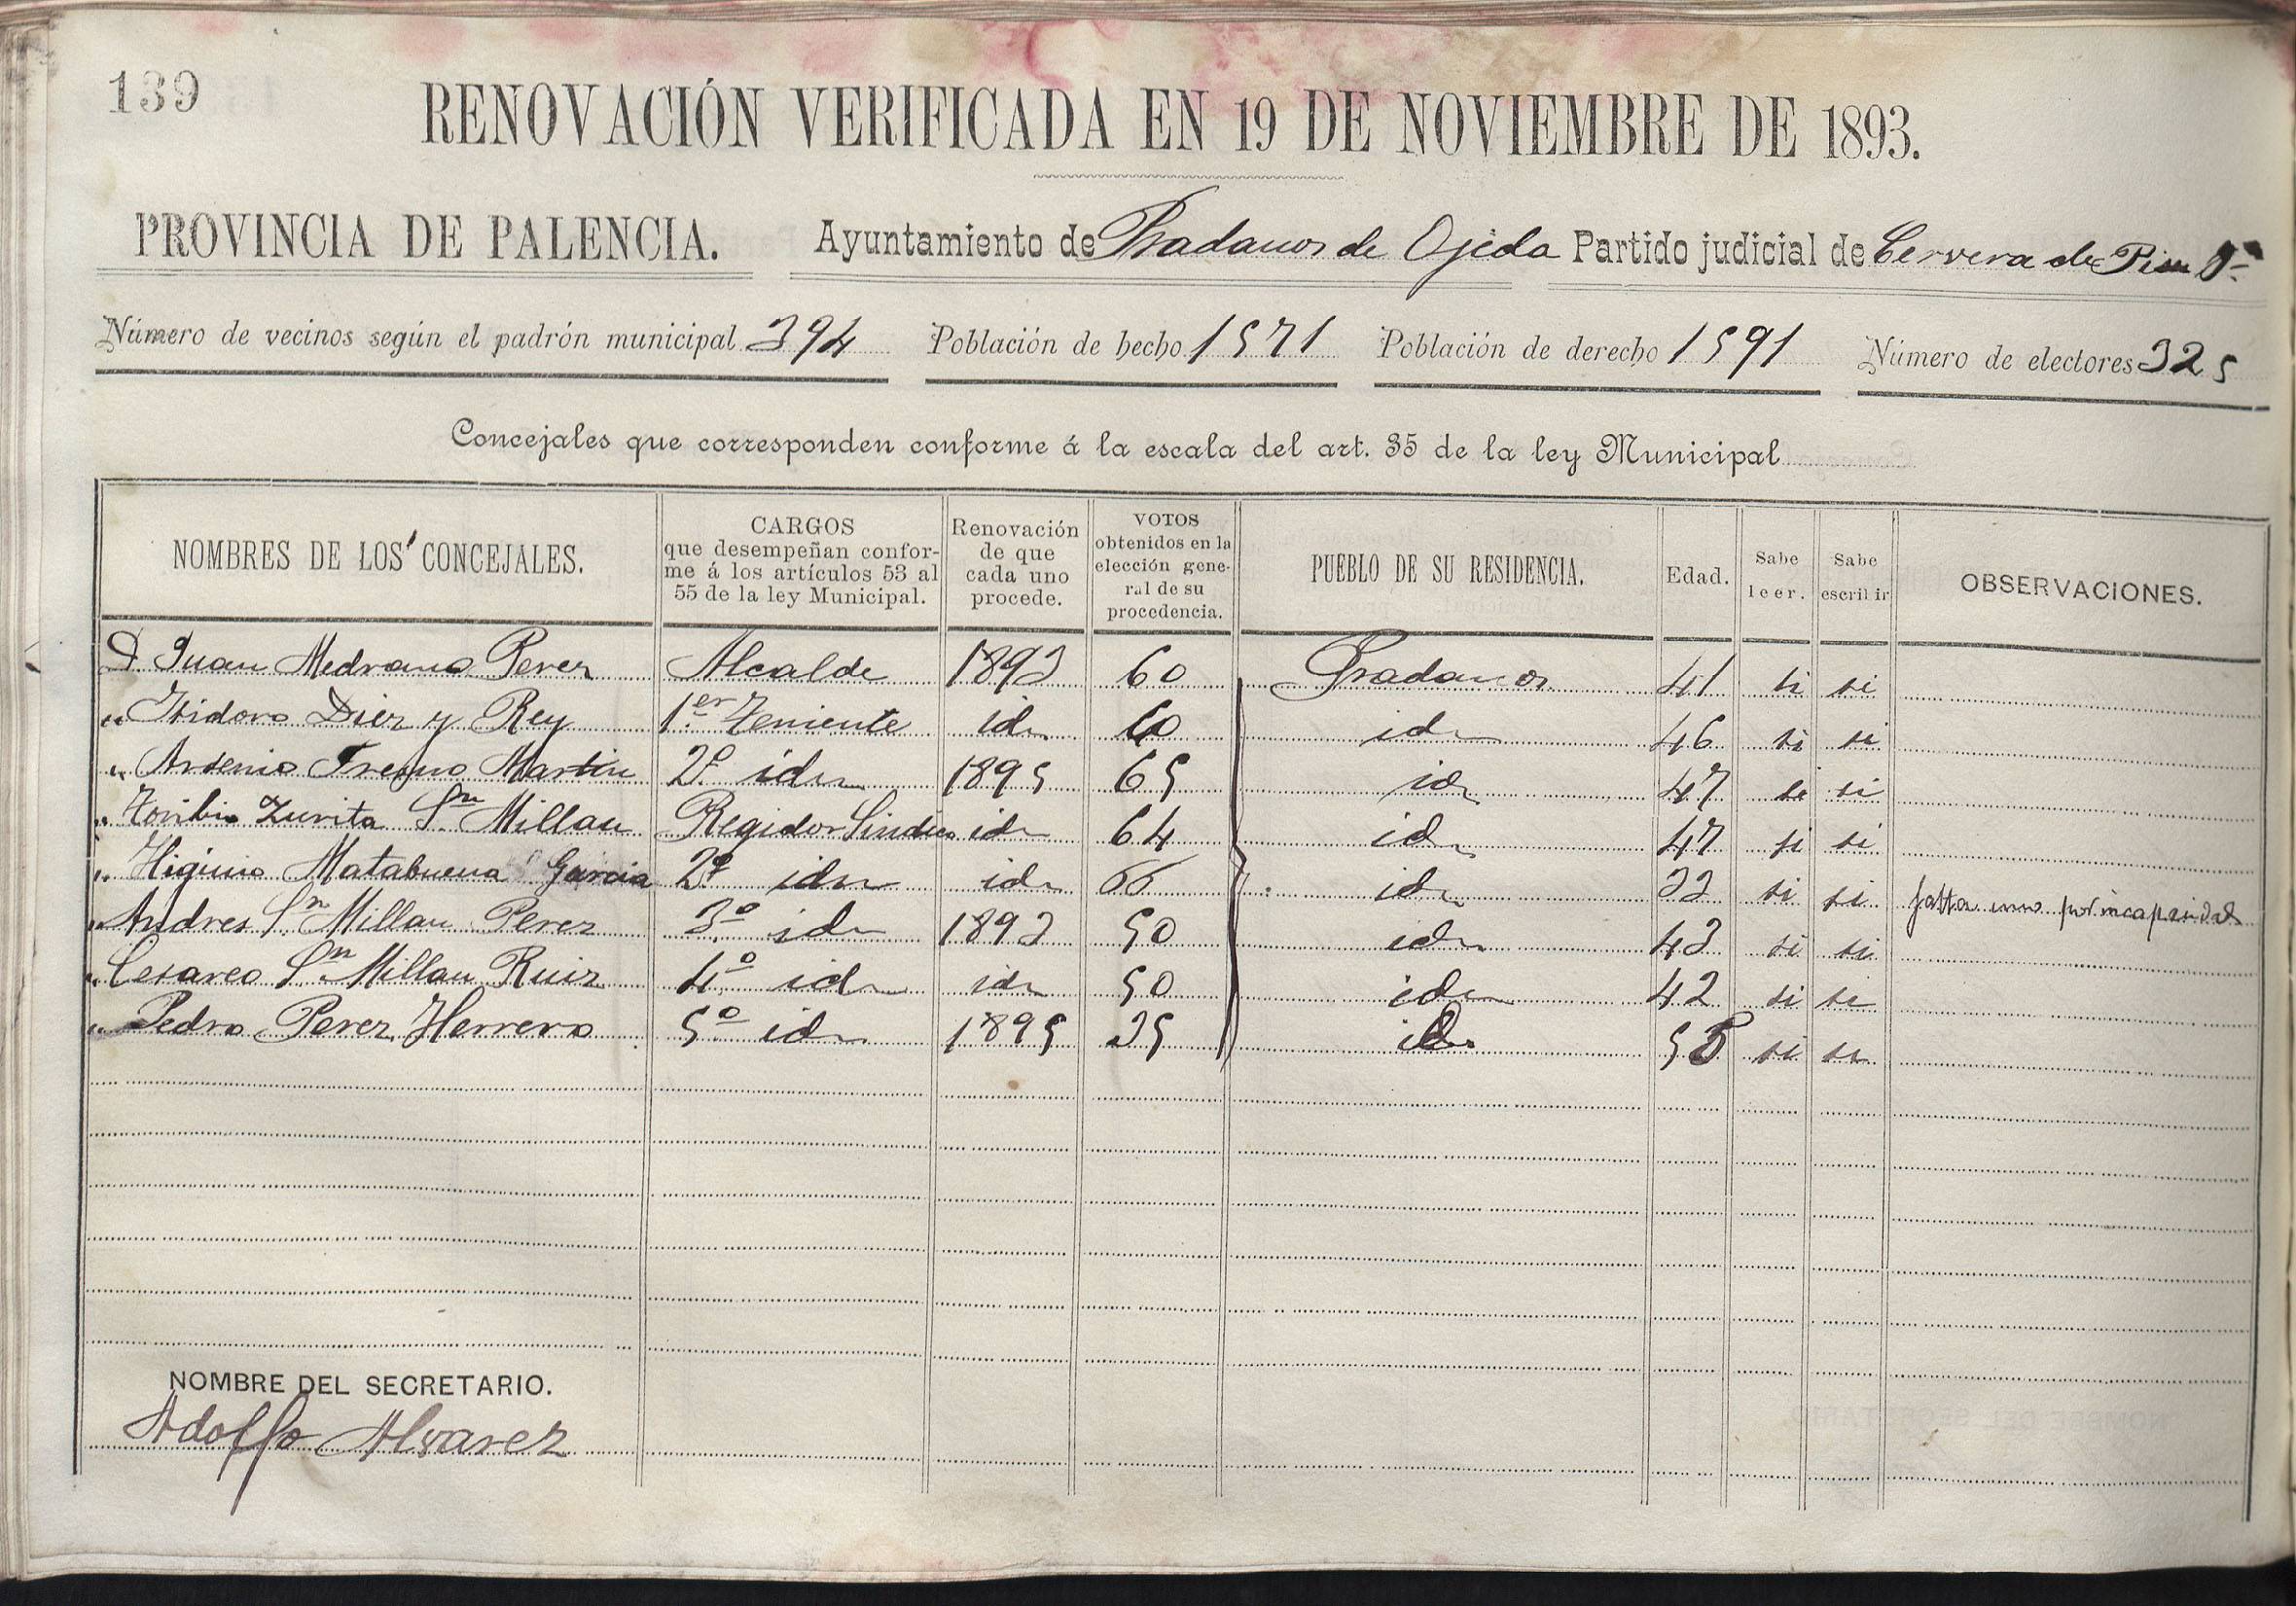 139
RENOVACIÓN VERIFICADA EN 19 DE NOVIEMBRE DE 1893.
PROVINCIA DE PALENCIA. Ayuntamiento de Pradanos de Ojeda Partido judicial de Cervera de
Número de vecinos según el padrón municipal 394 Población de hecho 1571 Población de derecho 1591 Número de electores 325
Concejales que corresponden conforme á la escala del art. 35 de la ley Municipal
NOMBRES DE LOS CONCEJALES.
CARGOS
que desempeñan confor-
me á los artículos 53 al
55 de la ley Municipal.
Renovación
de que
cada uno
procede.
VOTOS
obtenidos en la
elección gene-
ral de su
procedencia.
PUEBLO DE SU RESIDENCIA.
Edad.
Sabe
leer.
Sabe
escribir
OBSERVACIONES.
D Juan Medrano Perez Alcalde 1893 60 Pradanos 41 si si
" Isidoro Diez y Rey 1er Teniente id 60 id 46 si si
" Arsenio Fresno Martin 2º id 1895 65 id 47 si si
" Toribio Zurita Sn Millan Regidor Sindico id 64 id 47 si si
" Higinio Matabuena Garcia 2º id id 66 id 33 si si falta uno por incapacidad
" Andres Sn Millan Perez 3º id 1893 50 id 43 si si
" Cesareo Sn Millan Ruiz 4º id id 50 id 42 si si
" Pedro Perez Herrero 5º id 1895 35 id si si
NOMBRE DEL SECRETARIO.
Adolfo Alvarez